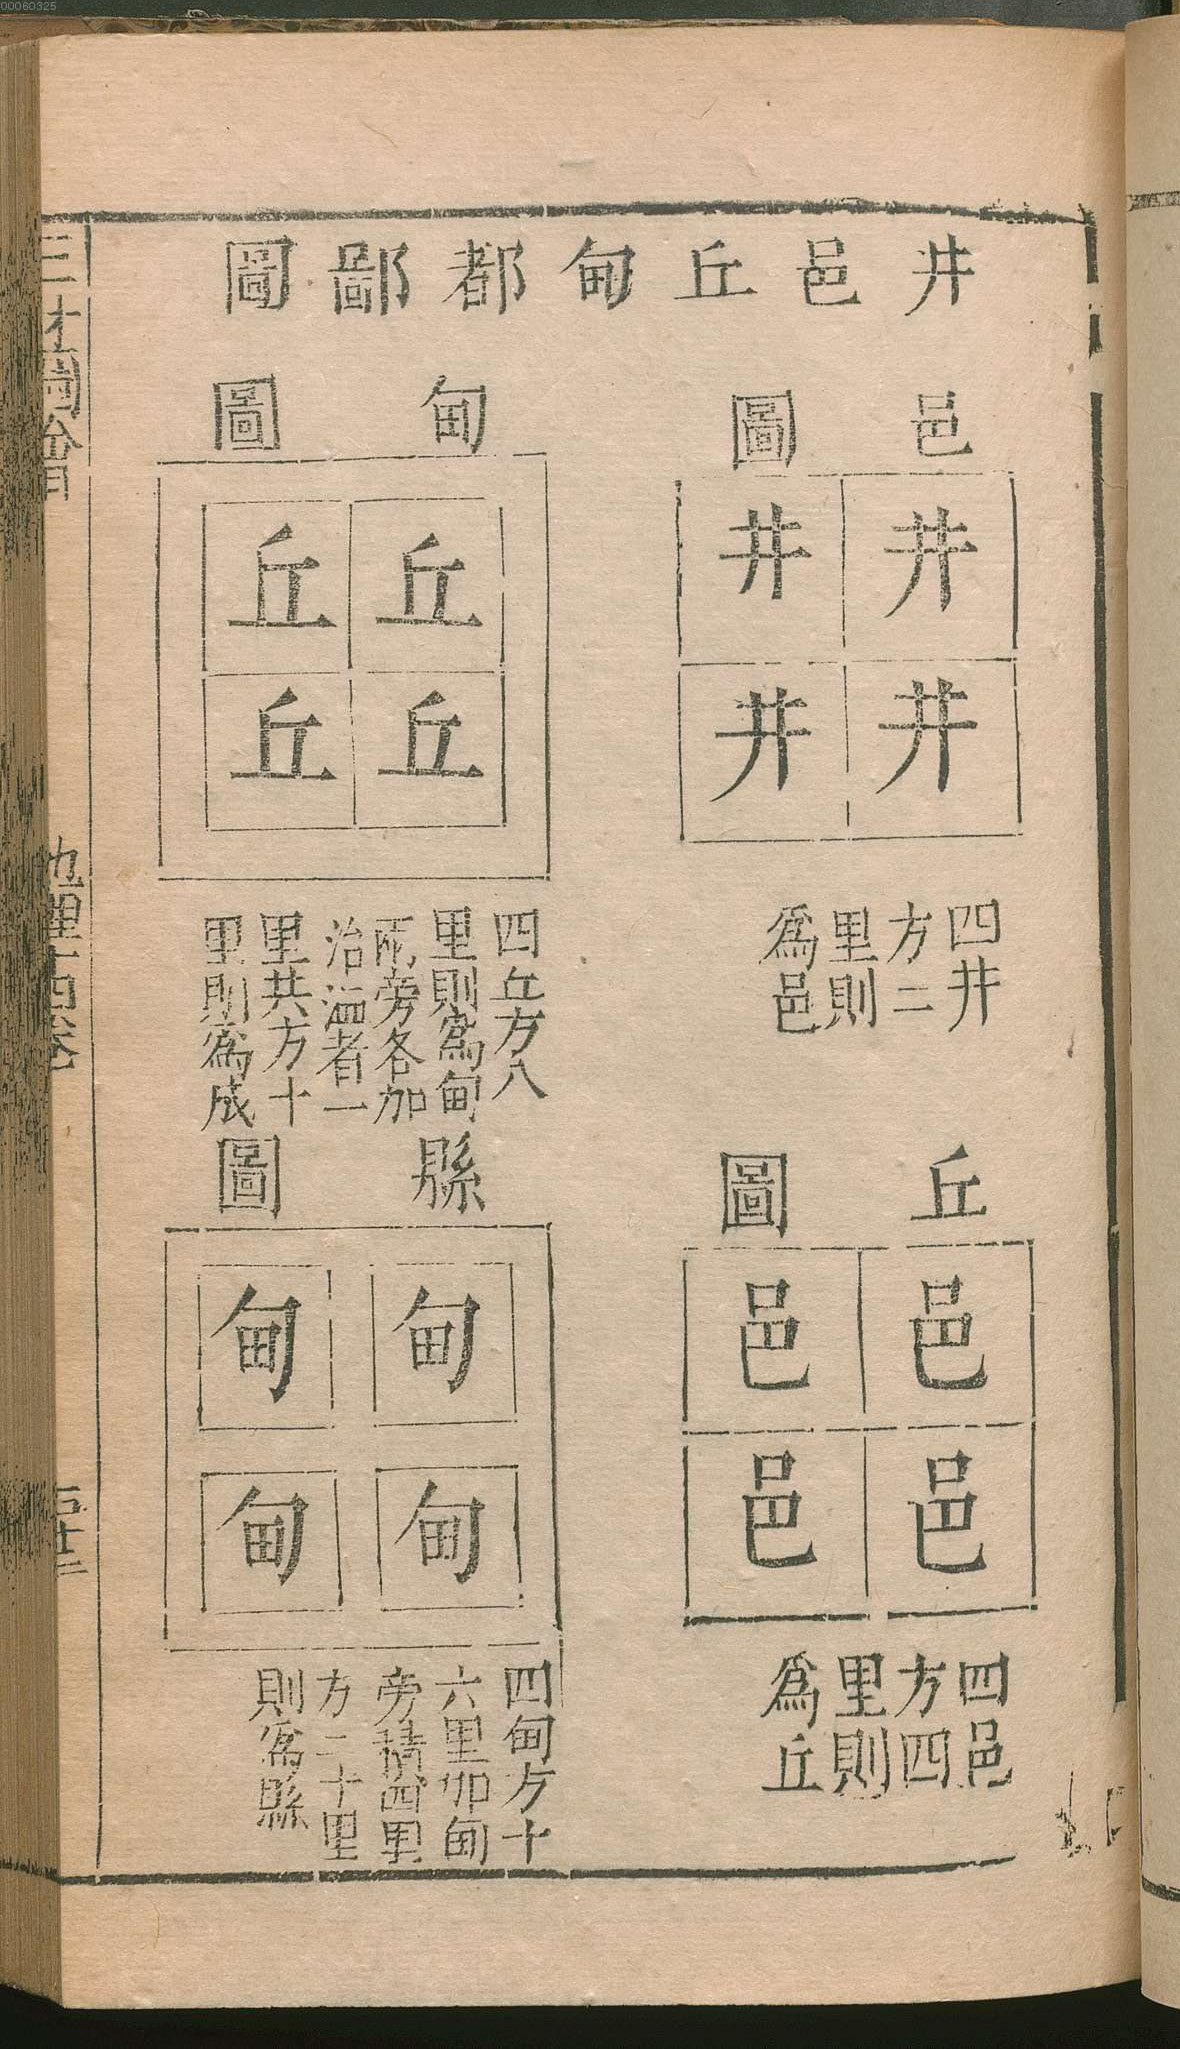 井邑丘甸都鄙圖
邑圖
井井
井井
四井
方二
里則
爲邑
丘圖
邑邑
邑邑
四邑
方四
里則
爲丘
甸圖
丘丘
丘丘
四丘方八
里則爲甸
兩旁各加
治洫者一
里共方十
里則爲成
縣圖
甸甸
甸甸
四甸方十
六里加甸
旁積四里
方二十里
則爲縣
三才圖會
地理十四卷
00060325